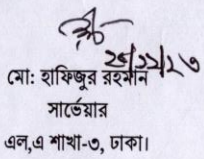 ২৬/১২/২৩
মো: হাফিজুর রহমান
সার্ভেয়ার
এল,এ শাখা-৩, ঢাকা।